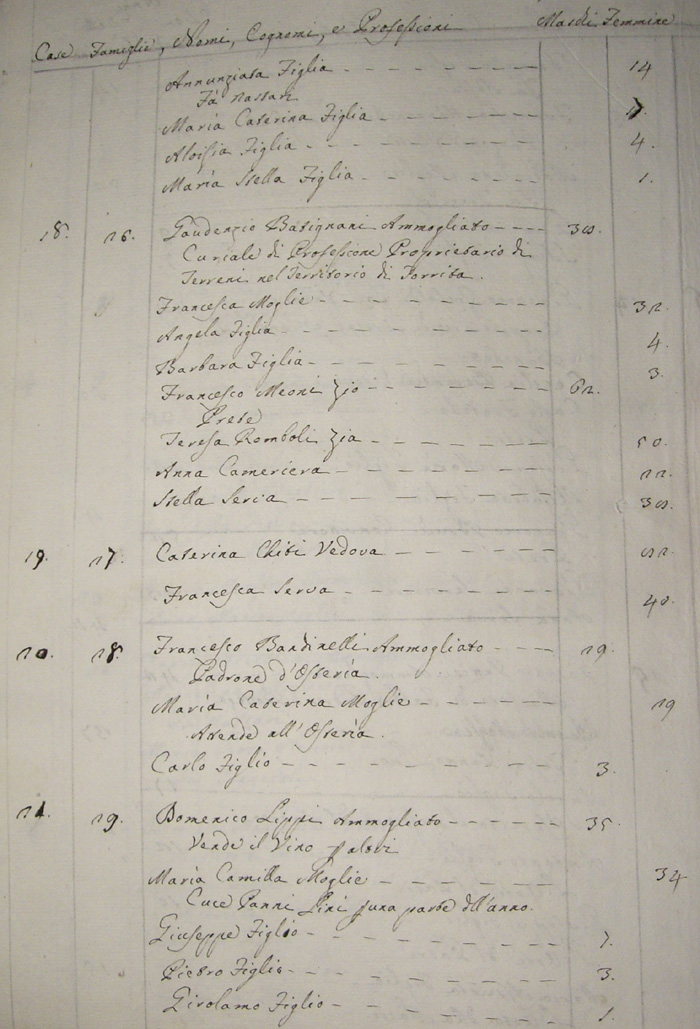 Case Fameglie, Nomi, Cognomi, e Professioni Maschi Femmine
Annunziata Figlia 14
Fà nastari
Maria Caterina Figlia 7.
Aloisia Figlia 4.
Maria Stella Figlia 1.
18. 26. Gaudenzio Batignani Ammogliato 30.
Curiale di Professione Proprietario di
Terreni nel Territorio di Torrita.
Francesca Moglie 32.
Angela Figlia 4.
Barbara Figlia 3.
Francesco Meoni Zio 62.
Prete
Teresa Romboli Zia 50.
Anna Cameriera 22.
Stella Serva 30.
19. 27. Caterina Chiti Vedova 52.
Francesca Serva 40.
20. 28. Francesco Bandinelli Ammogliato 29.
Padrone d'Osteria.
Maria Caterina Moglie 29
Attende all'Osteria.
Carlo Figlio 3.
21. 29. Domenico Lippi Ammogliato 35.
Vende il Vino p altri
Maria Camilla Moglie 34
Cuce Panni Lini p una parte dell'anno.
Giuseppe Figlio 7.
Pietro Figlio 3.
Girolamo Figlio 1.